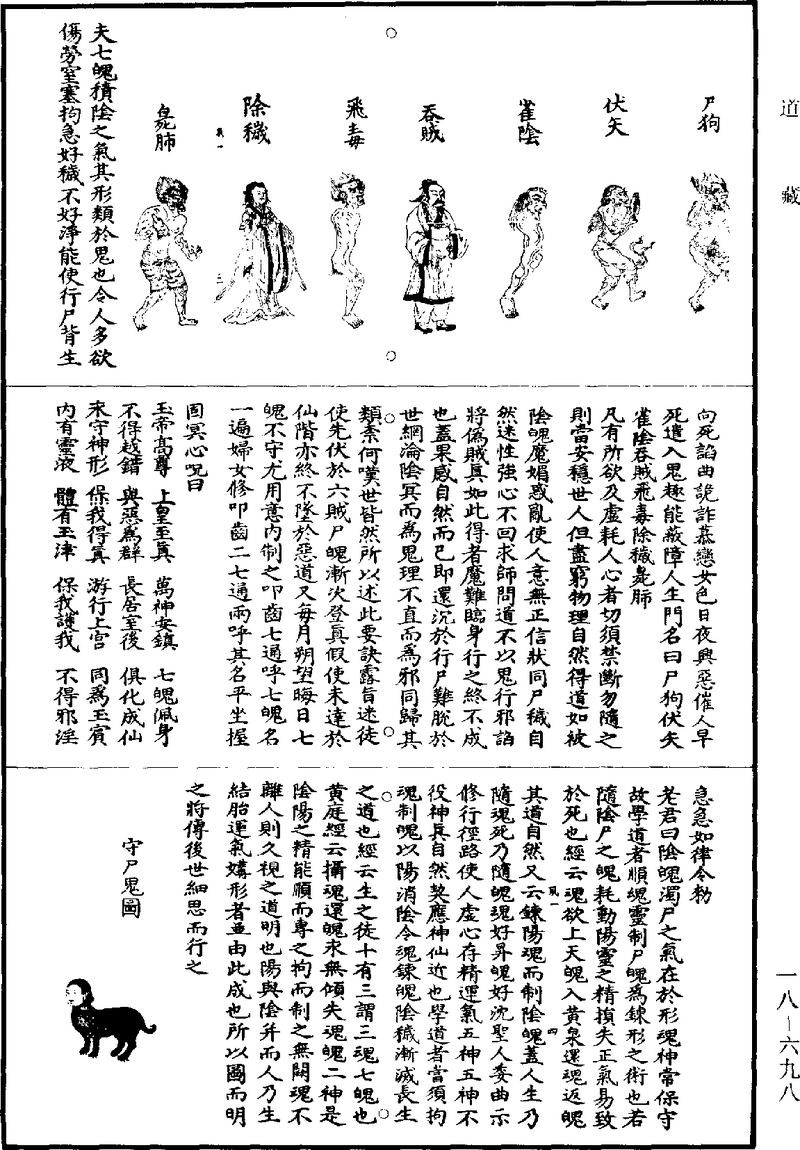 道藏
尸狗
伏矢
雀陰
吞賊
飛毒
除穢
臭肺
夫七魄積陰之氣其形類於鬼也令人多欲
傷勞窒塞拘急好穢不好淨能使行尸背生
向死諂曲詭詐慕戀女色日夜興惡催人早
死遣入鬼趣能蔽障人生門名曰尸狗伏矢
雀陰吞賊飛毒除穢臭肺
凡有所欲及虛耗人心者切須禁斷勿隨之
則當安穩世人但盡窮物理自然得道如被
陰魄魔媚惑亂使人意無正信狀同尸穢自
然迷性強心不回求師問道不以鬼行邪諂
將偽賊真如此得者魔難臨身行之終不成
也蓋果感自然而已即還沉於行尸難脫於
世網淪陰冥而為鬼理不直而為邪同歸其
類素何嘆世皆然所以述此要訣露旨迷徒
使先伏於六賊尸魄漸次登真假使未達於
仙階亦終不墜於惡道又每月朔望晦日七
魄不守尤用意內制之叩齒七通呼七魄名
一遍婦女修叩齒二七通兩呼其名平坐握
固冥心呪曰
玉帝高尊 上皇至真 萬神安鎮 七魄佩身
不得越錯 與惡為群 長居室後 俱化成仙
來守神形 保我得真 游行上宮 同為玉賓
內有靈液 體有玉津 保我護我 不得邪淫
急急如律令勑
老君曰陰魄濁尸之氣在於形魂神常保守
故學道者順魂靈制尸魄為鍊形之術也若
隨陰尸之魄耗動陽靈之精損失正氣易致
於死也經云魂欲上天魄入黃泉還魂返魄
其道自然又云鍊陽魂而制陰魄蓋人生乃
隨魂死乃隨魄魂好昇魄好沈聖人委曲示
修行徑路使人虛心存精運氣五神五神不
役神真自然契應神仙近也學道者當須拘
魂制魄以陽消陰令魂鍊魄陰穢漸滅長生
之道也經云生之徒十有三謂三魂七魄也
黃庭經云攝魂還魄永無傾失魂魄二神是
陰陽之精能順而專之拘而制之無闕魂不
離人則久視之道明也陽與陰并而人乃生
結胎運氣媾形者並由此成也所以圖而明
之將傳後世細思而行之
守尸鬼圖
一八－六九八